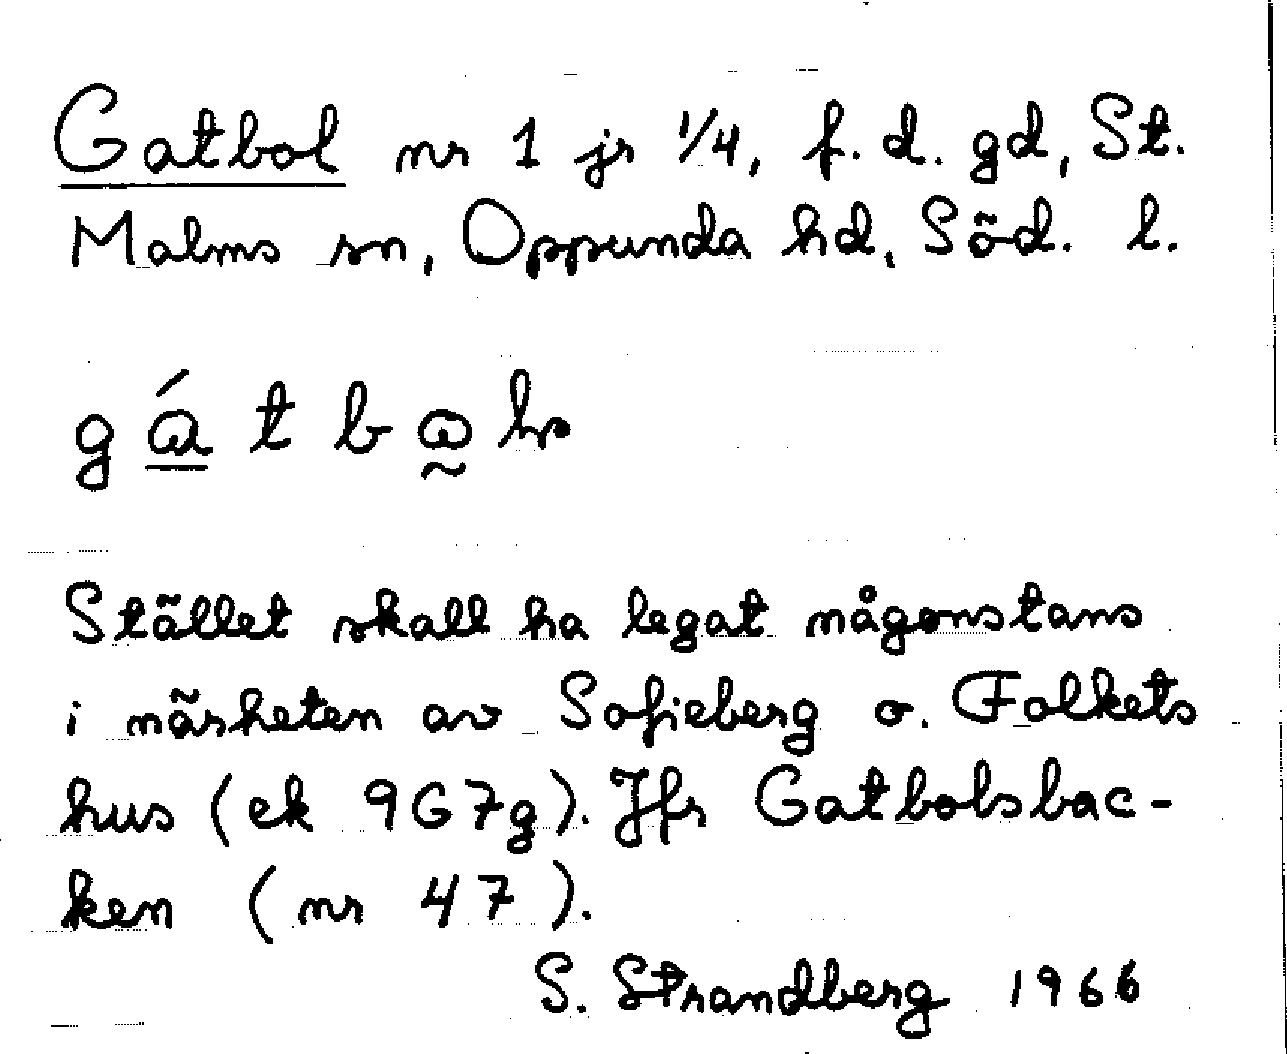 Gatbol nr 1 jr 1/4, f. d. gd, St.
Malms sn, Oppunda hd, Söd. l.
Stället skall ha legat någonstans
i närheten av Sofieberg o. Folkets
hus (ek 9G7g). Jfr Gatbolsbac-
ken (nr 47).
S. Strandberg 1966